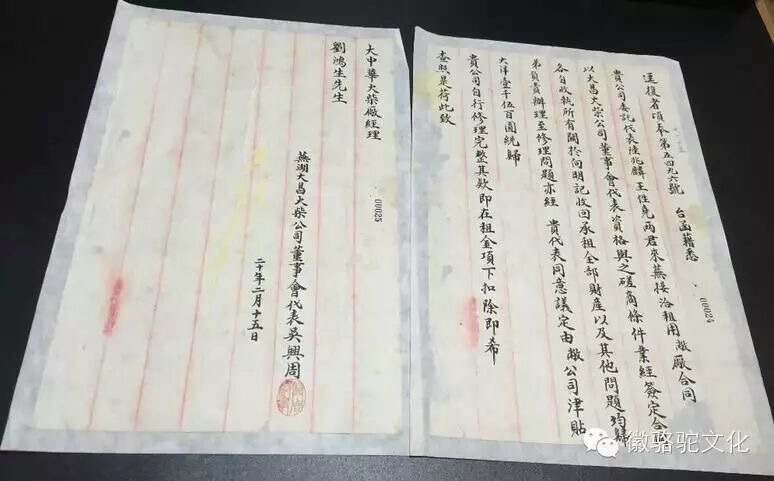 逕復者頃奉第五四九六號 台函藉悉
貴公司委託代表陸兆麟王性堯兩君來蕪接洽租用敝廠合同
以大昌火柴公司董事會代表資格與之磋商條件業經簽定合同
各自收執所有關於向明記收回承租全部財產以及其他問題均歸
弟負責辦理至修理問題亦經 貴代表同意議定由敝公司津貼
大洋壹千伍百圓統歸
貴公司自行修理完整其欵即在租金項下扣除即希
查照是荷此致
00024
大中華火柴廠經理
劉鴻生先生
蕪湖大昌火柴公司董事會代表吳興周
二十年二月十五日
00025
徽骆驼文化